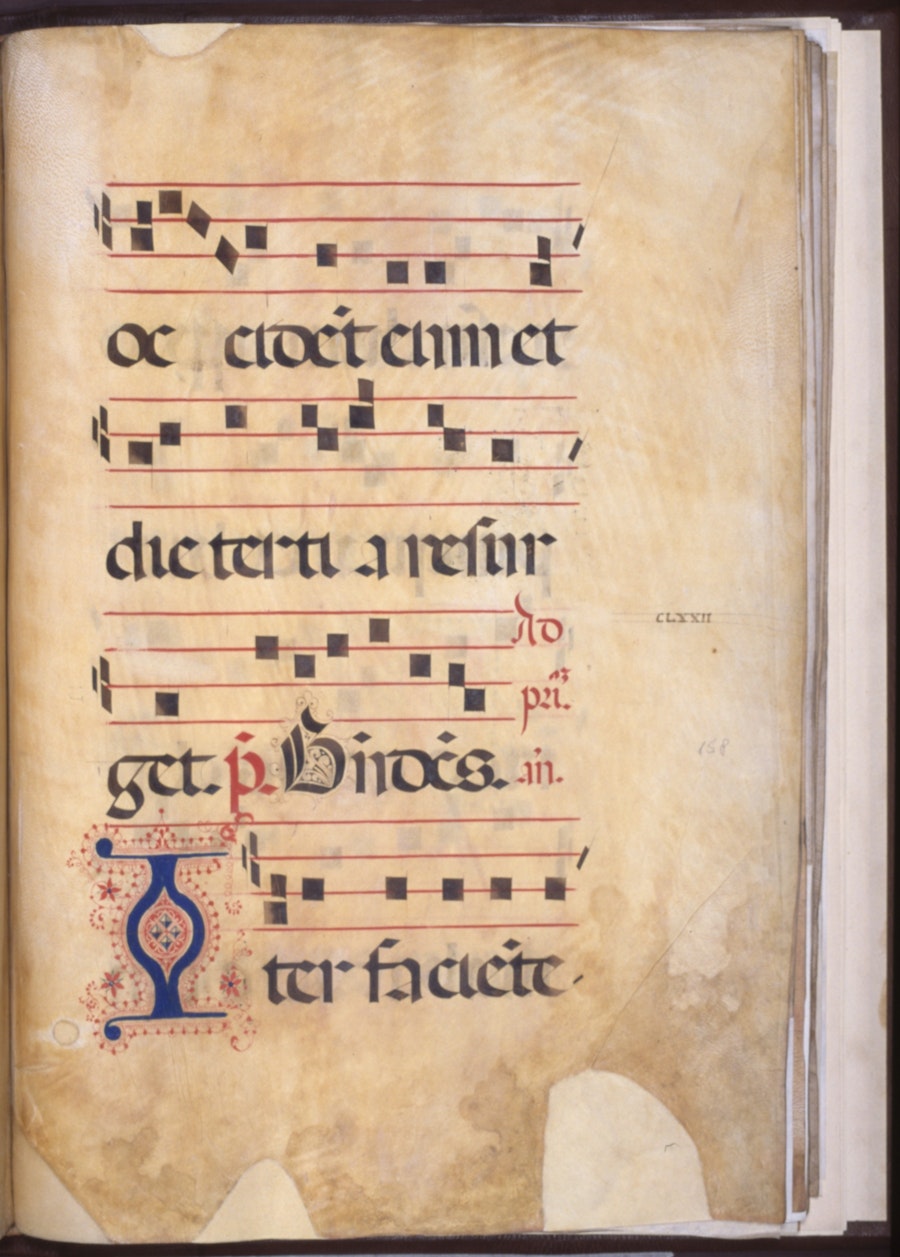 oc cidēt eum et
die terti a resur
Ad
CLXXII
get. p̄. Bn̄dc̄s. an̄.
158
I ter faciēte